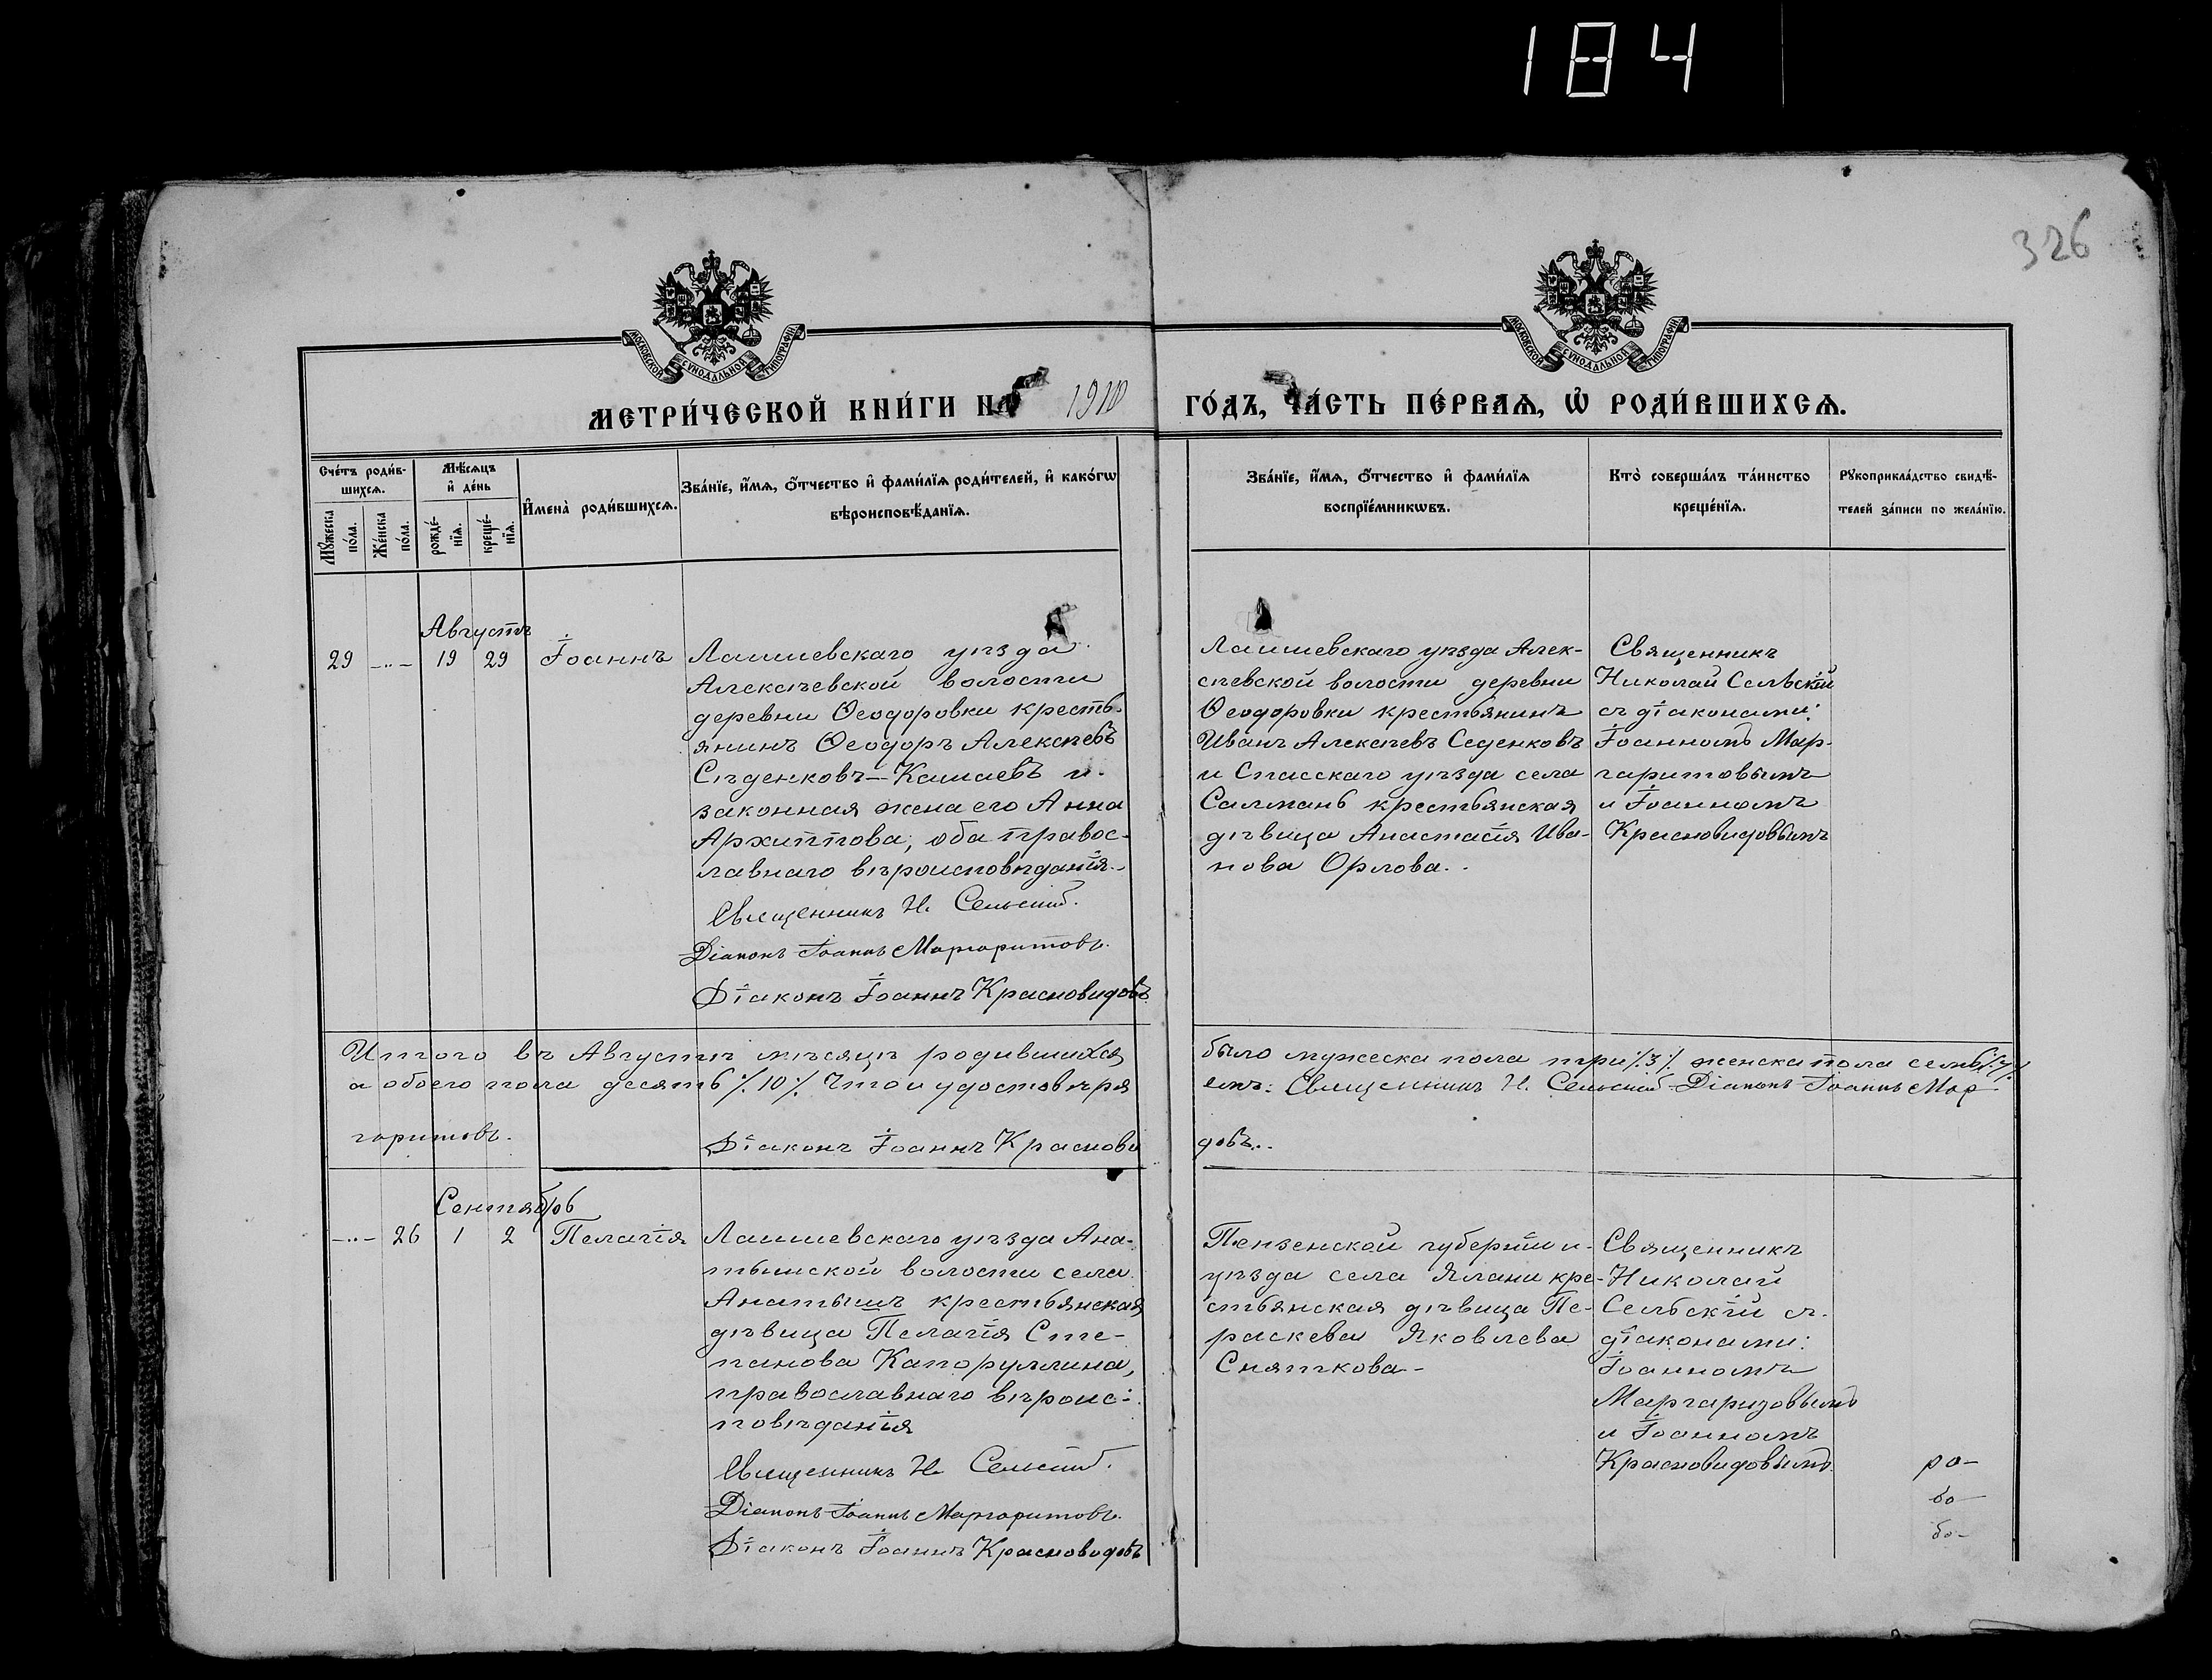 184
326
МОСКОВСКОЙ СУНОДАЛЬНОЙ ТИПОГРАФІИ
МОСКОВСКОЙ СУНОДАЛЬНОЙ ТИПОГРАФІИ
МЕТРИ́ЧЕСКОЙ КНИ́ГИ НА 1910 ГО́ДЪ, ЧА́СТЬ ПЕ́РВАѦ, Ѡ҆ РОДИ́ВШИХСѦ.
Сче́тъ роди́в-
шихсѧ.
Мꙋ́жеска по́ла.
Же́нска по́ла.
Мѣ́сѧцъ
и҆ де́нь
рожде́-
нїѧ.
креще́-
нїѧ.
И҆мена̀ роди́вшихсѧ.
Зва́нїе, и҆́мѧ, ѻ҆́тчество и҆ фами́лїѧ роди́телей, и҆ како́гѡ
вѣроисповѣ́данїѧ.
Зва́нїе, и҆́мѧ, ѻ҆́тчество и҆ фами́лїѧ
воспрїе́мникѡвъ.
Кто̀ соверша́лъ та́инство
креще́нїѧ.
Рꙋкоприкла́дство свидѣ́-
телей за́писи по жела́нїю.
Августъ
29 -„- 19 29 Іоаннъ
Лаишевскаго уѣзда
Алексѣевской волости
деревни Ѳеодоровки кресть-
янинъ Ѳеодоръ Алексѣевъ
Сѣденковъ-Камаевъ и
законная жена его Анна
Архиппова, оба правос-
лавнаго вѣроисповѣданія.-
Священникъ Н. Сельскій.
Діаконъ Іоаннъ Маргаритовъ.
Діаконъ Іоаннъ Красновидовъ
Лаишевскаго уѣзда Алек-
сѣевской волости деревни
Ѳеодоровки крестьянинъ
Иванъ Алексѣевъ Седенковъ
и Спасскаго уѣзда села
Салманъ крестьянская
дѣвица Анастасія Ива-
нова Орлова..
Священникъ
Николай Сельскій
съ діаконами:
Іоанномъ Мар-
гаритовымъ
и Іоанномъ
Красновидовымъ
Итого въ Августѣ мѣсяцѣ родившихся было мужеска пола три ⁒3⁒ женска пола семь ⁒7⁒
а обоего пола десять ⁒10⁒ Что и удостовѣряемъ: Священникъ Н. Сельскій Діаконъ Іоаннъ Мар-
гаритовъ. Діаконъ Іоаннъ Красновидовъ..
Сентябрь
-„- 26 1 2 Пелагія
Лаишевскаго уѣзда Ана-
тышской волости села
Анатышъ крестьянская
дѣвица Пелагія Сте-
панова Капоруллина,
православнаго вѣроис-
повѣданія
Священникъ Н. Сельскій.
Діаконъ Іоаннъ Маргаритовъ.
Діаконъ Іоаннъ Красновидовъ
Пензенской губерніи и
уѣзда села Ялани кре-
стьянская дѣвица Пе-
раскева Яковлева
Сняткова-
Священникъ
Николай
Сельскій съ
діаконами:
Іоанномъ
Маргаризовымъ
и Іоанномъ
Красновидовымъ.
ро-
бо-
бо-